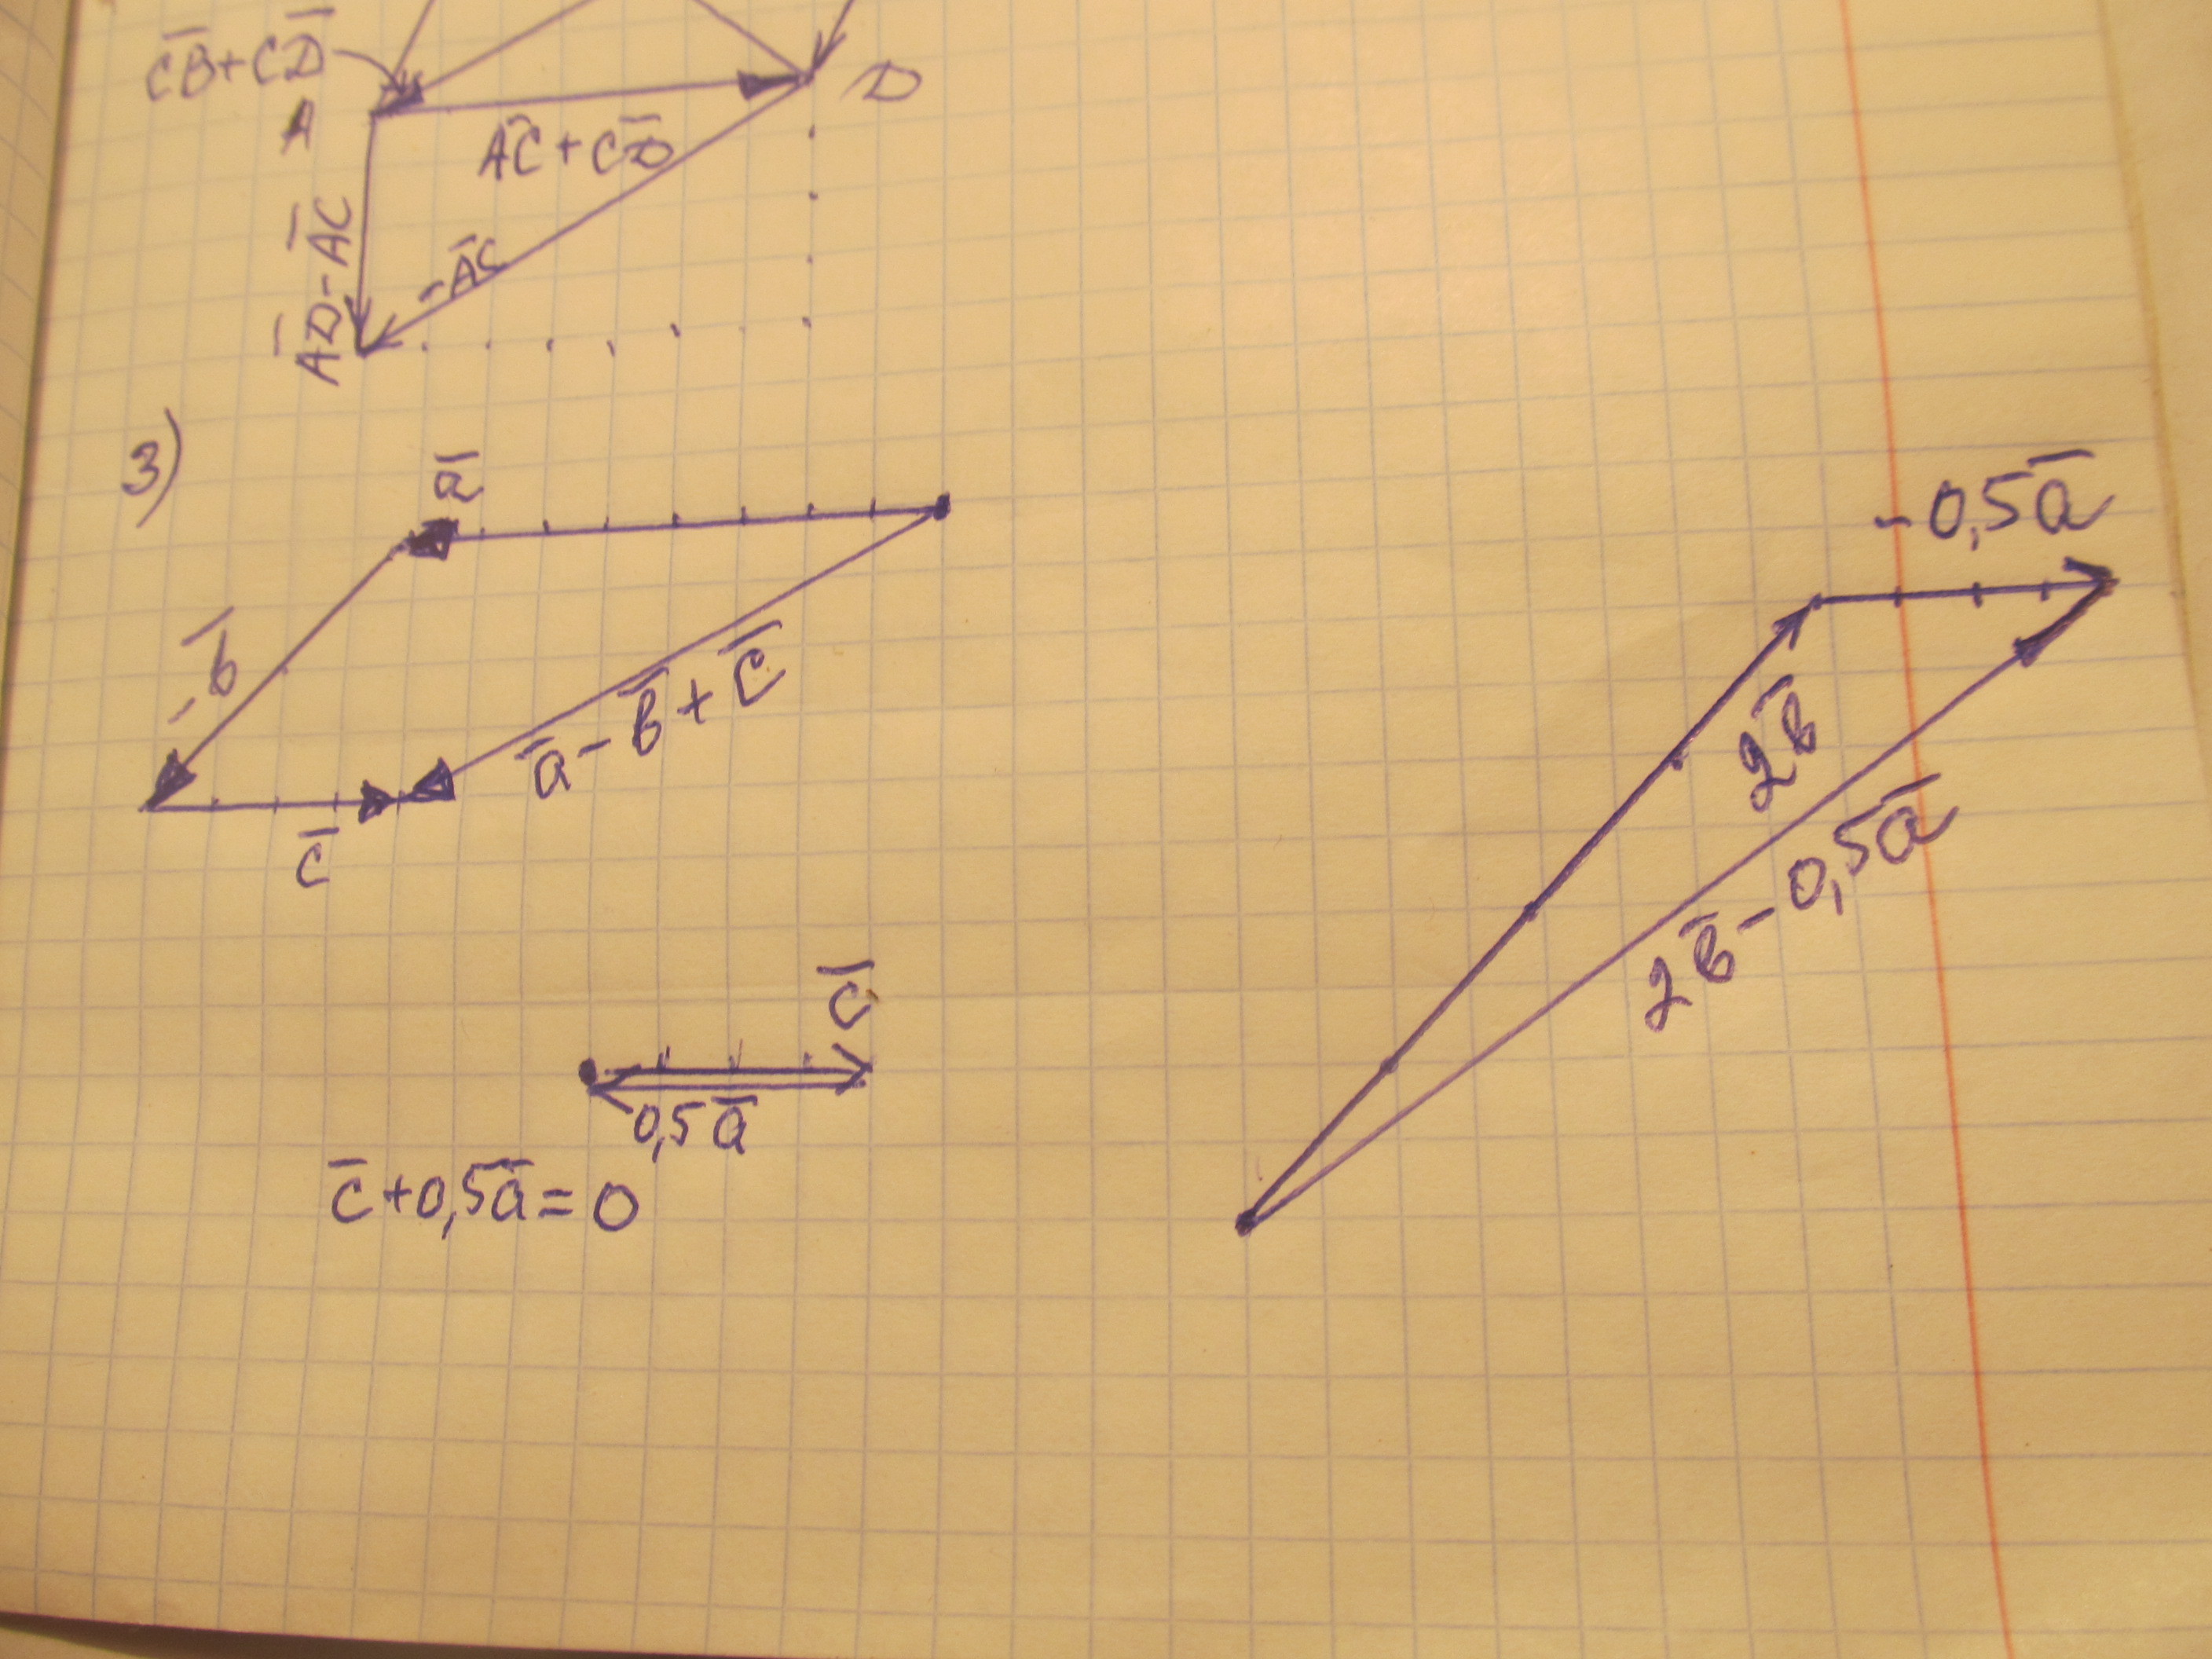 C̅B+CD̅
A
D
AC̅+CD̅
A̅D-A̅C
-A̅C
3)
a̅
-b̅
c̅
a̅-b̅+c̅
-0,5a̅
2b̅
2b̅-0,5a̅
c̅
0,5a̅
c̅+0,5a̅=0